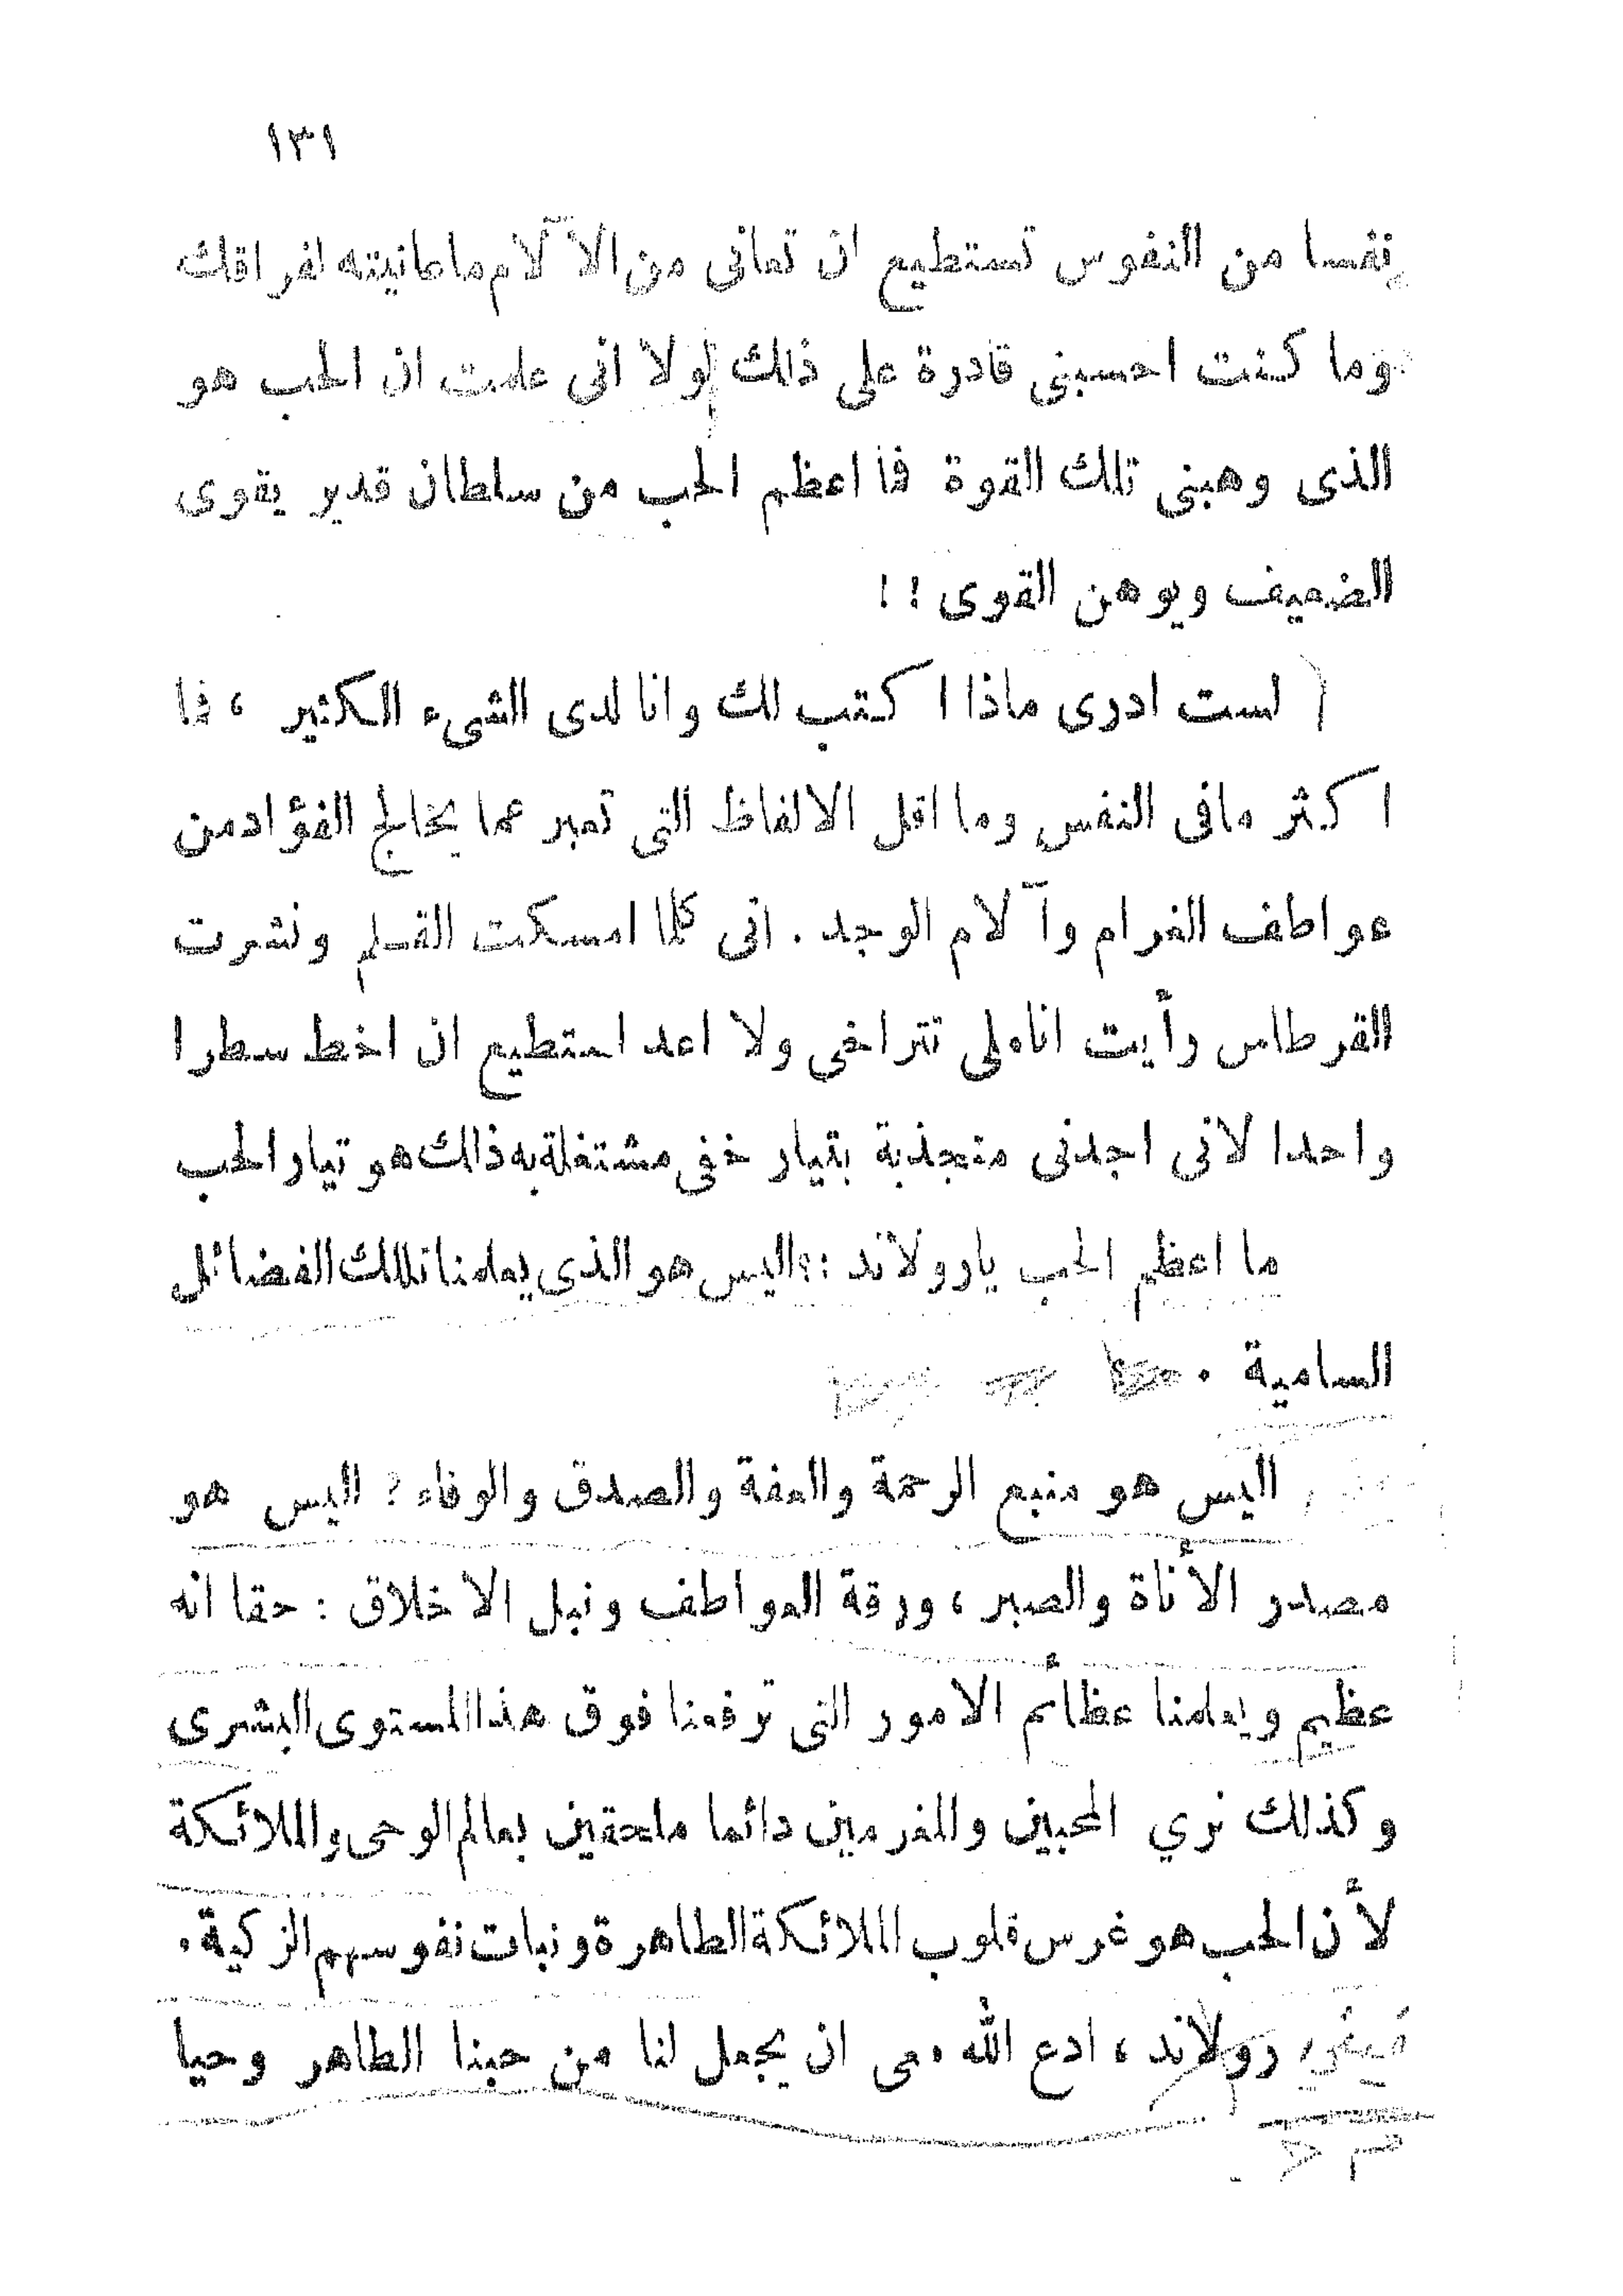 ١٣١
نفسا من النفوس تستطيع ان تعانى من الآلام ماعانيته لفراقك
وما كنت احسبنى قادرة على ذلك لولا انى علمت ان الحب هو
الذى وهبنى تلك القوة فما اعظم الحب من سلطان قدير يقوى
الضعيف ويوهن القوى ! !
لست ادرى ماذا اكتب لك وانا لدى الشىء الكثير ، فما
اكثر مافى النفس وما اقل الالفاظ التى تعبر عما يخالج الفؤاد من
عواطف الغرام وآلام الوجد . انى كلما امسكت القلم ونشرت
القرطاس رأيت اناملى تتراخى ولا اعد استطيع ان اخط سطرا
واحدا لانى اجدنى منجذبة بتيار خفى مشتغلة به ذلك هو تيار الحب
ما اعظم الحب يارولاند :؛ اليس هو الذى يعلمنا تلك الفضائل
السامية .
اليس هو منبع الرحمة والعفة والصدق والوفاء ؟ اليس هو
مصدر الأناة والصبر ، ورقة العواطف ونبل الاخلاق : حقا انه
عظيم ويعلمنا عظائم الامور التى ترفعنا فوق هذا المستوى البشرى
وكذلك نري المحبين والمغرمين دائما ملحقين بعالم الوحى والملائكة
لأن الحب هو غرس قلوب الملائكة الطاهرة ونبات نفوسهم الزكية .
رولاند ، ادع الله معى ان يجعل لنا من حبنا الطاهر وحيا